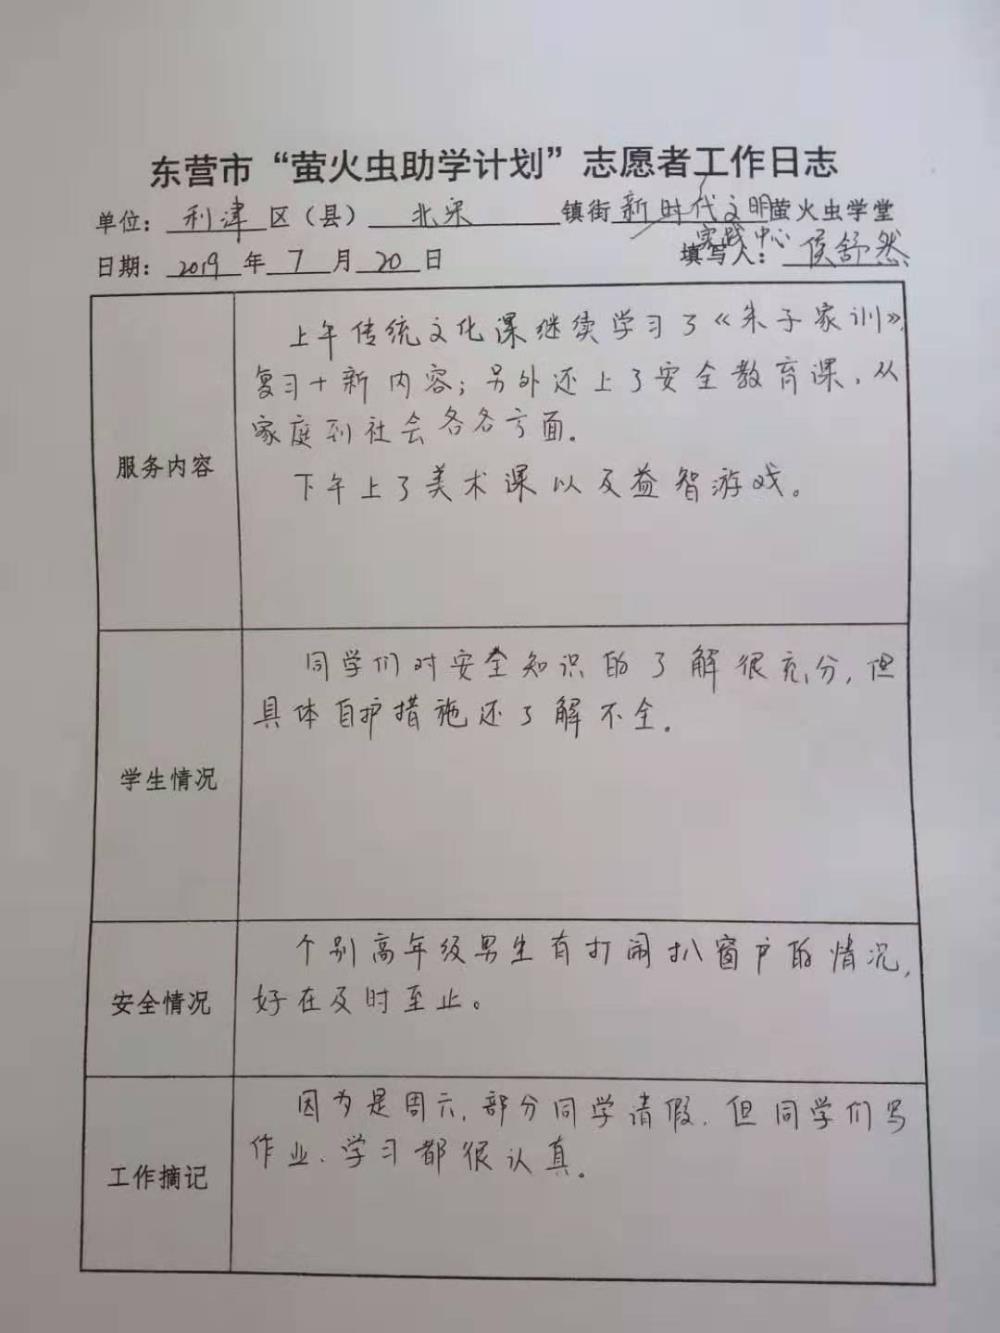 东营市“萤火虫助学计划”志愿者工作日志
单位：利津区（县）北宋镇街新时代文明萤火虫学堂
实践中心
日期：2019年7月20日 填写人：侯舒然
服务内容
上午传统文化课继续学习了《朱子家训》，
复习+新内容；另外还上了安全教育课，从
家庭到社会各各方面。
下午上了美术课以及益智游戏。
学生情况
同学们对安全知识的了解很充分，但
具体自护措施还了解不全。
安全情况
个别高年级男生有打闹扒窗户的情况，
好在及时至止。
工作摘记
因为是周六，部分同学请假，但同学们写
作业、学习都很认真。